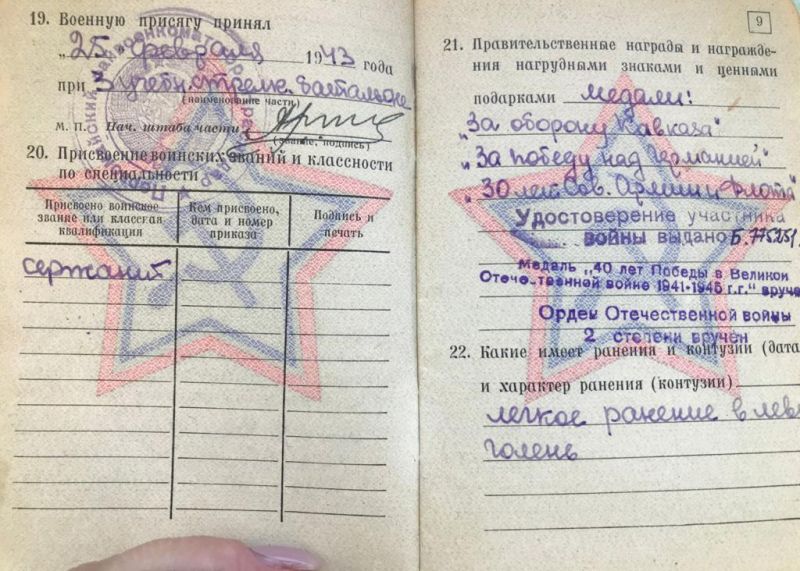 19. Военную присягу принял
„25 февраля 1943 года
при 3 учебн. стрелк. батальоне
(наименование части)
М. П. Нач. штаба части
(звание, подпись)
20. Присвоение воинских званий и классности
по специальности
Присвоено воинское звание или классная квалификация
Кем присвоено, дата и номер приказа
Подпись и печать
сержант
9
21. Правительственные награды и награжде-
ния нагрудными знаками и ценными
подарками медали:
„За оборону Кавказа"
„За победу над Германией"
„30 лет Сов. Армии и Флота"
Удостоверение участника
войны выдано Б. 775251
Медаль „40 лет Победы в Великой
Отечественной войне 1941-1945 г.г." вруче
Орден Отечественной войны
2 степени вручен
22. Какие имеет ранения и контузии (дата
и характер ранения (контузии)
легкое ранение в лев
голень